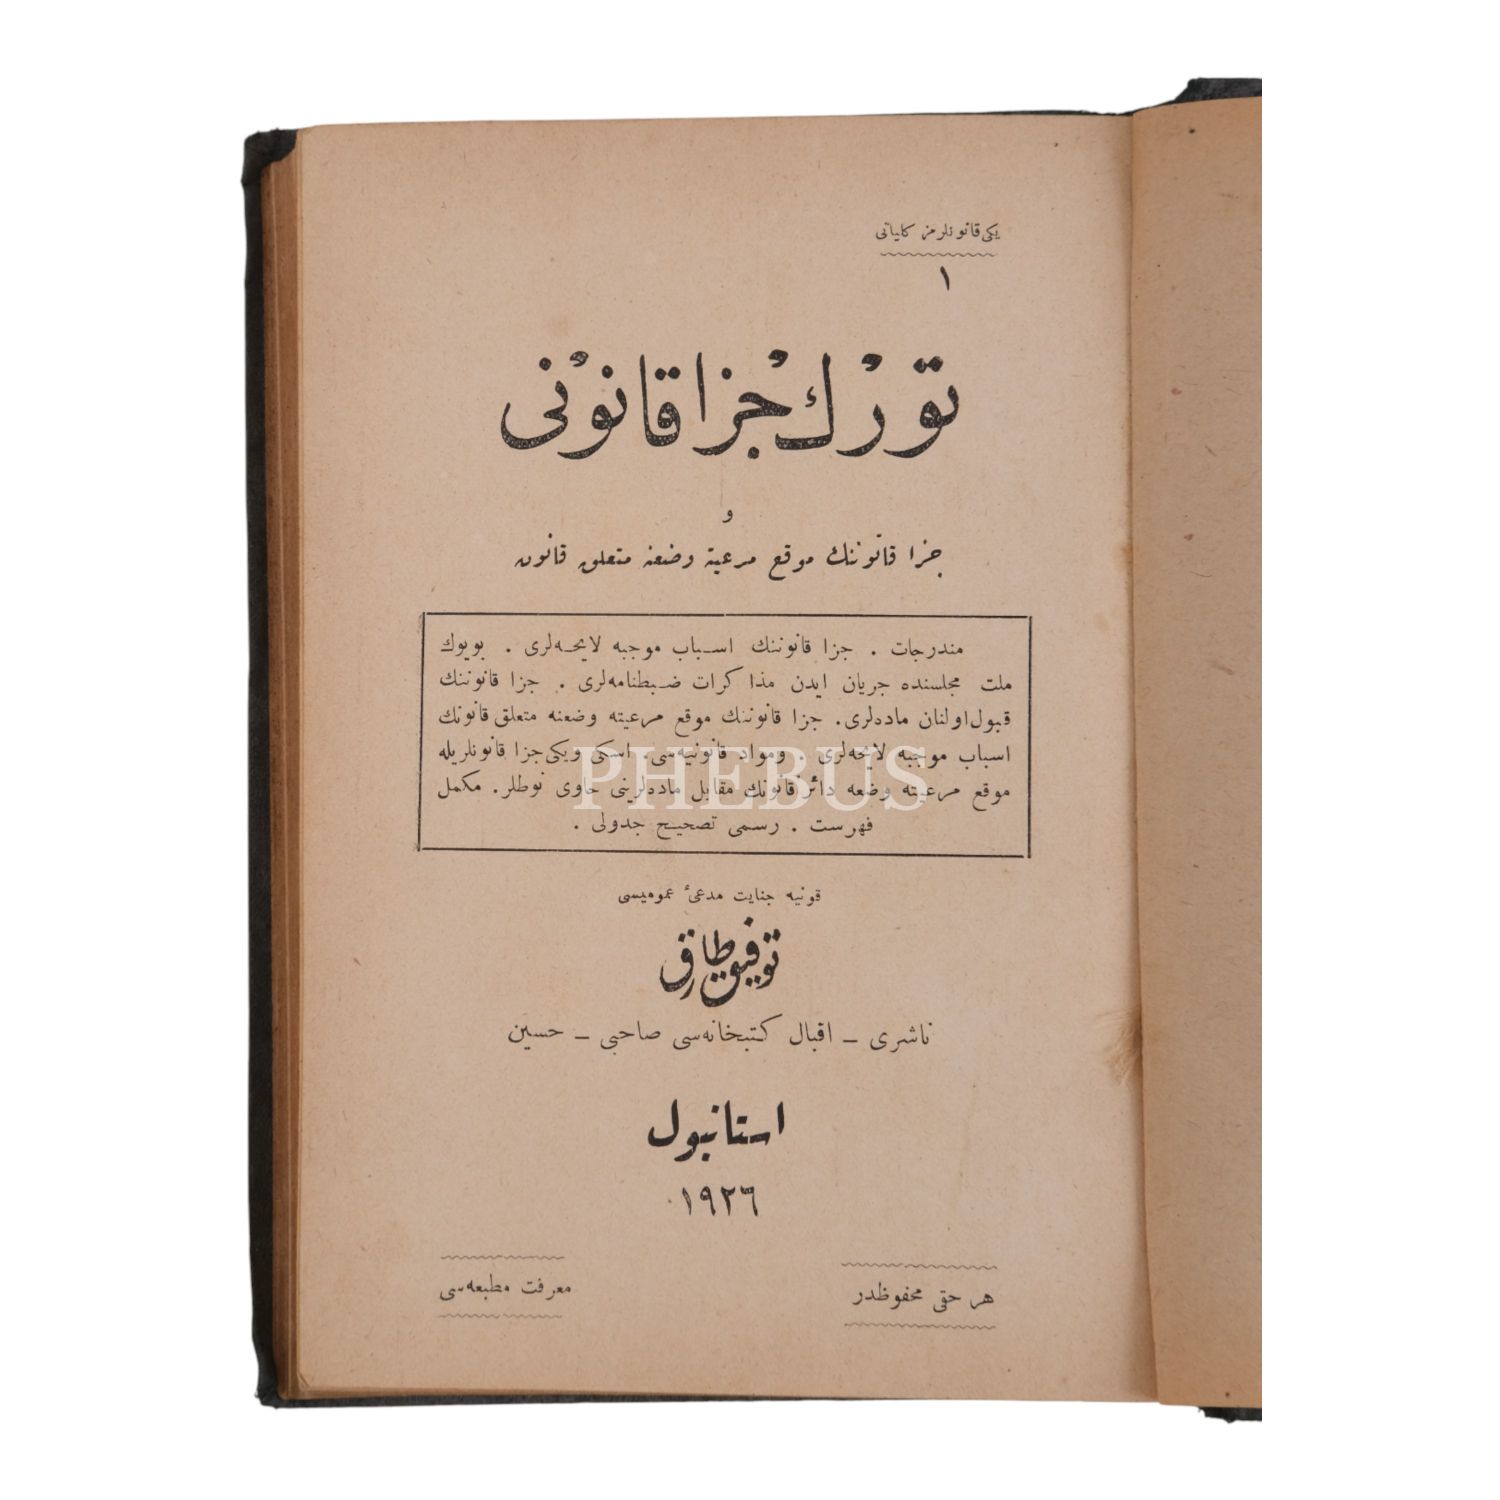 یكی قانونلرمز كلیاتی
١
تورك جزا قانونی
و
جزا قانوننك موقع مرعیته وضعنه متعلق قانون
مندرجات . جزا قانوننك اسباب موجبه لایحه‌لری . بویوك
ملت مجلسنده جریان ایدن مذاكرات ضبطنامه‌لری . جزا قانوننك
قبول اولنان ماده‌لری . جزا قانوننك موقع مرعیته وضعنه متعلق قانونك
اسباب موجبه لایحه‌لری . ومواد قانونیه‌سی . اسكی ویكی جزا قانونلریله
موقع مرعیته وضعه دائر قانونك مقابل ماده‌لرینی حاوی نوطلر . مكمل
فهرست . رسمی تصحیح جدولی .
PHEBUS
قونیه جنایت مدعیٔ عمومیسی
توفیق طارق
ناشری ـ اقبال كتبخانه‌سی صاحبی ـ حسین
استانبول
١٩٢٦
هر حقی محفوظدر
معرفت مطبعه‌سی